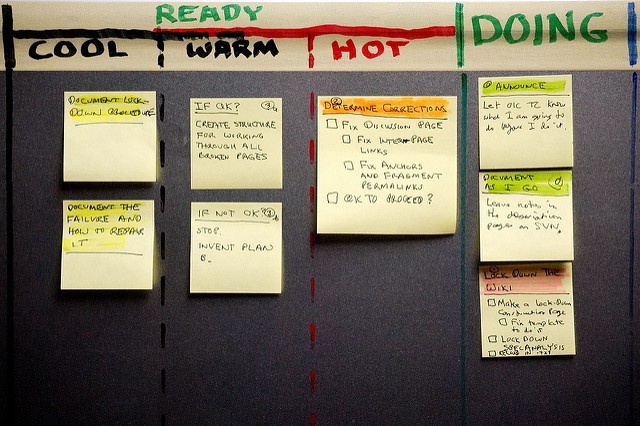 READY
COOL
WARM
HOT
DOING
DOCUMENT LOCK-
DOWN PROCEDURE
DOCUMENT THE
FAILURE AND
HOW TO REPAIR
IT
IF OK?
CREATE STRUCTURE
FOR WORKING
THROUGH ALL
BROKEN PAGES
IF NOT OK?
STOP.
INVENT PLAN
B.
DETERMINE CORRECTIONS
FIX DISCUSSION PAGE
FIX INTER-PAGE
LINKS
FIX ANCHORS
AND FRAGMENT
PERMALINKS
OK TO PROCEED?
ANNOUNCE
Let OTC TZ know
what I am going to
do before I do it.
DOCUMENT
AS I GO
Leave notes in
the description
pages on SVN.
LOCK DOWN THE
WIKI
Make a Lock-Down
Construction Page
Fix template
to do's
LOCK DOWN